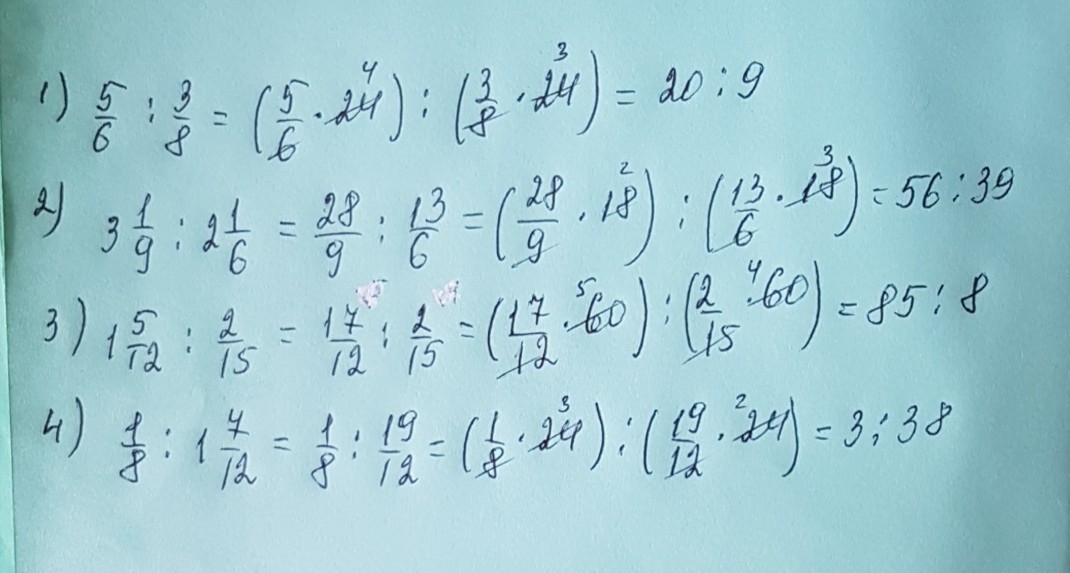 1) 5/6 : 3/8 = (5/6 · 24 4) : (3/8 · 24 3) = 20 : 9
2) 3 1/9 : 2 1/6 = 28/9 : 13/6 = (28/9 · 18 2) : (13/6 · 18 3) = 56 : 39
3) 1 5/12 : 2/15 = 17/12 : 2/15 = (17/12 · 60 5) : (2/15 · 60 4) = 85 : 8
4) 1/8 : 1 7/12 = 1/8 : 19/12 = (1/8 · 24 3) : (19/12 · 24 2) = 3 : 38